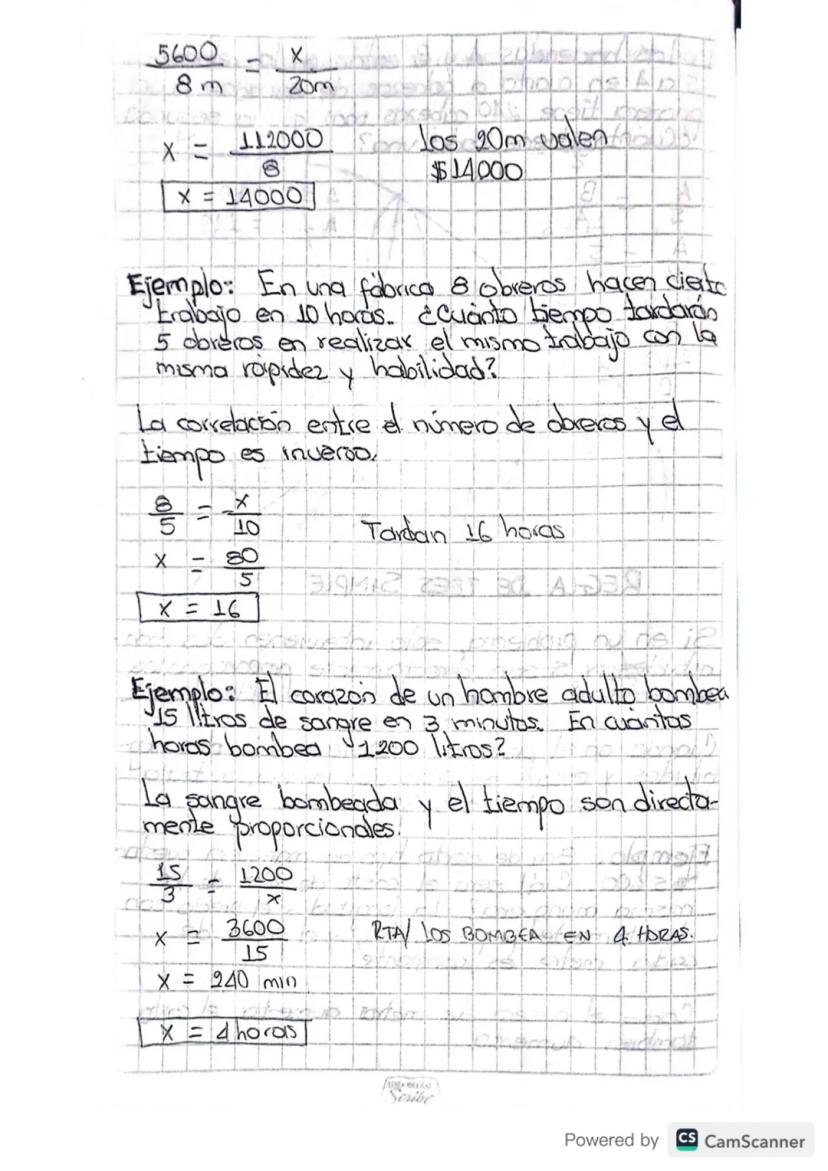 5600 = x
8 m 20m
x = 112000 los 20m valen
8 $14000
x = 14000
Ejemplo: En una fábrica 8 obreros hacen cierto
trabajo en 10 horas. ¿Cuánto tiempo tardarán
5 obreros en realizar el mismo trabajo con la
misma rapidez y habilidad?
La correlación entre el número de obreros y el
tiempo es inverso.
8 = x
5 10 Tardan 16 horas
x = 80
5
x = 16
Ejemplo: El corazón de un hombre adulto bombea
15 litros de sangre en 3 minutos. En cuántas
horas bombea 1200 litros?
La sangre bombeada y el tiempo son directa-
mente proporcionales.
15 = 1200
3 x
x = 3600 RTA/ LOS BOMBEA EN 4 HORAS.
15
x = 240 min
x = 4 horas
Scribe
Powered by CS CamScanner